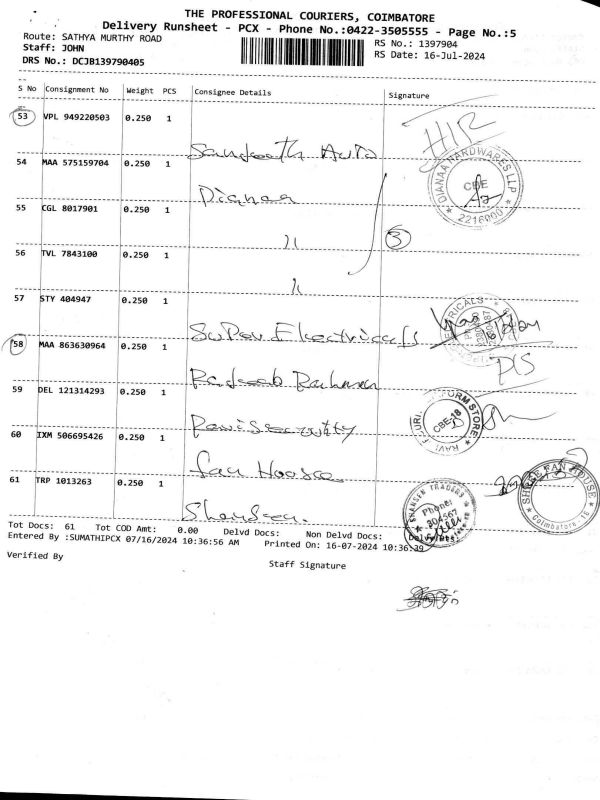 THE PROFESSIONAL COURIERS, COIMBATORE
Delivery Runsheet - PCX - Phone No.:0422-3505555 - Page No.:5
Route: SATHYA MURTHY ROAD
RS No.: 1397904
Staff: JOHN
RS Date: 16-Jul-2024
DRS No.: DCJB139790405
S No Consignment No Weight PCS Consignee Details Signature
53 VPL 949220503 0.250 1
Sandeeth Auto
54 MAA 575159704 0.250 1
Dianaa
DIANAA HARDWARES LLP
CBE
2216000
55 CGL 8017901 0.250 1
〃
3
56 TVL 7843100 0.250 1
〃
57 STY 404947 0.250 1
Super Electricals
58 MAA 863630964 0.250 1
59 DEL 121314293 0.250 1
CBE-18
60 IXM 506695426 0.250 1
Fan House
SHREE FAN HOUSE
Coimbatore-18
61 TRP 1013263 0.250 1
SHANSEN TRADERS
Phone:
304567
Tot Docs: 61 Tot COD Amt: 0.00 Delvd Docs: Non Delvd Docs:
Entered By :SUMATHIPCX 07/16/2024 10:36:56 AM Printed On: 16-07-2024 10:36:39
Verified By
Staff Signature